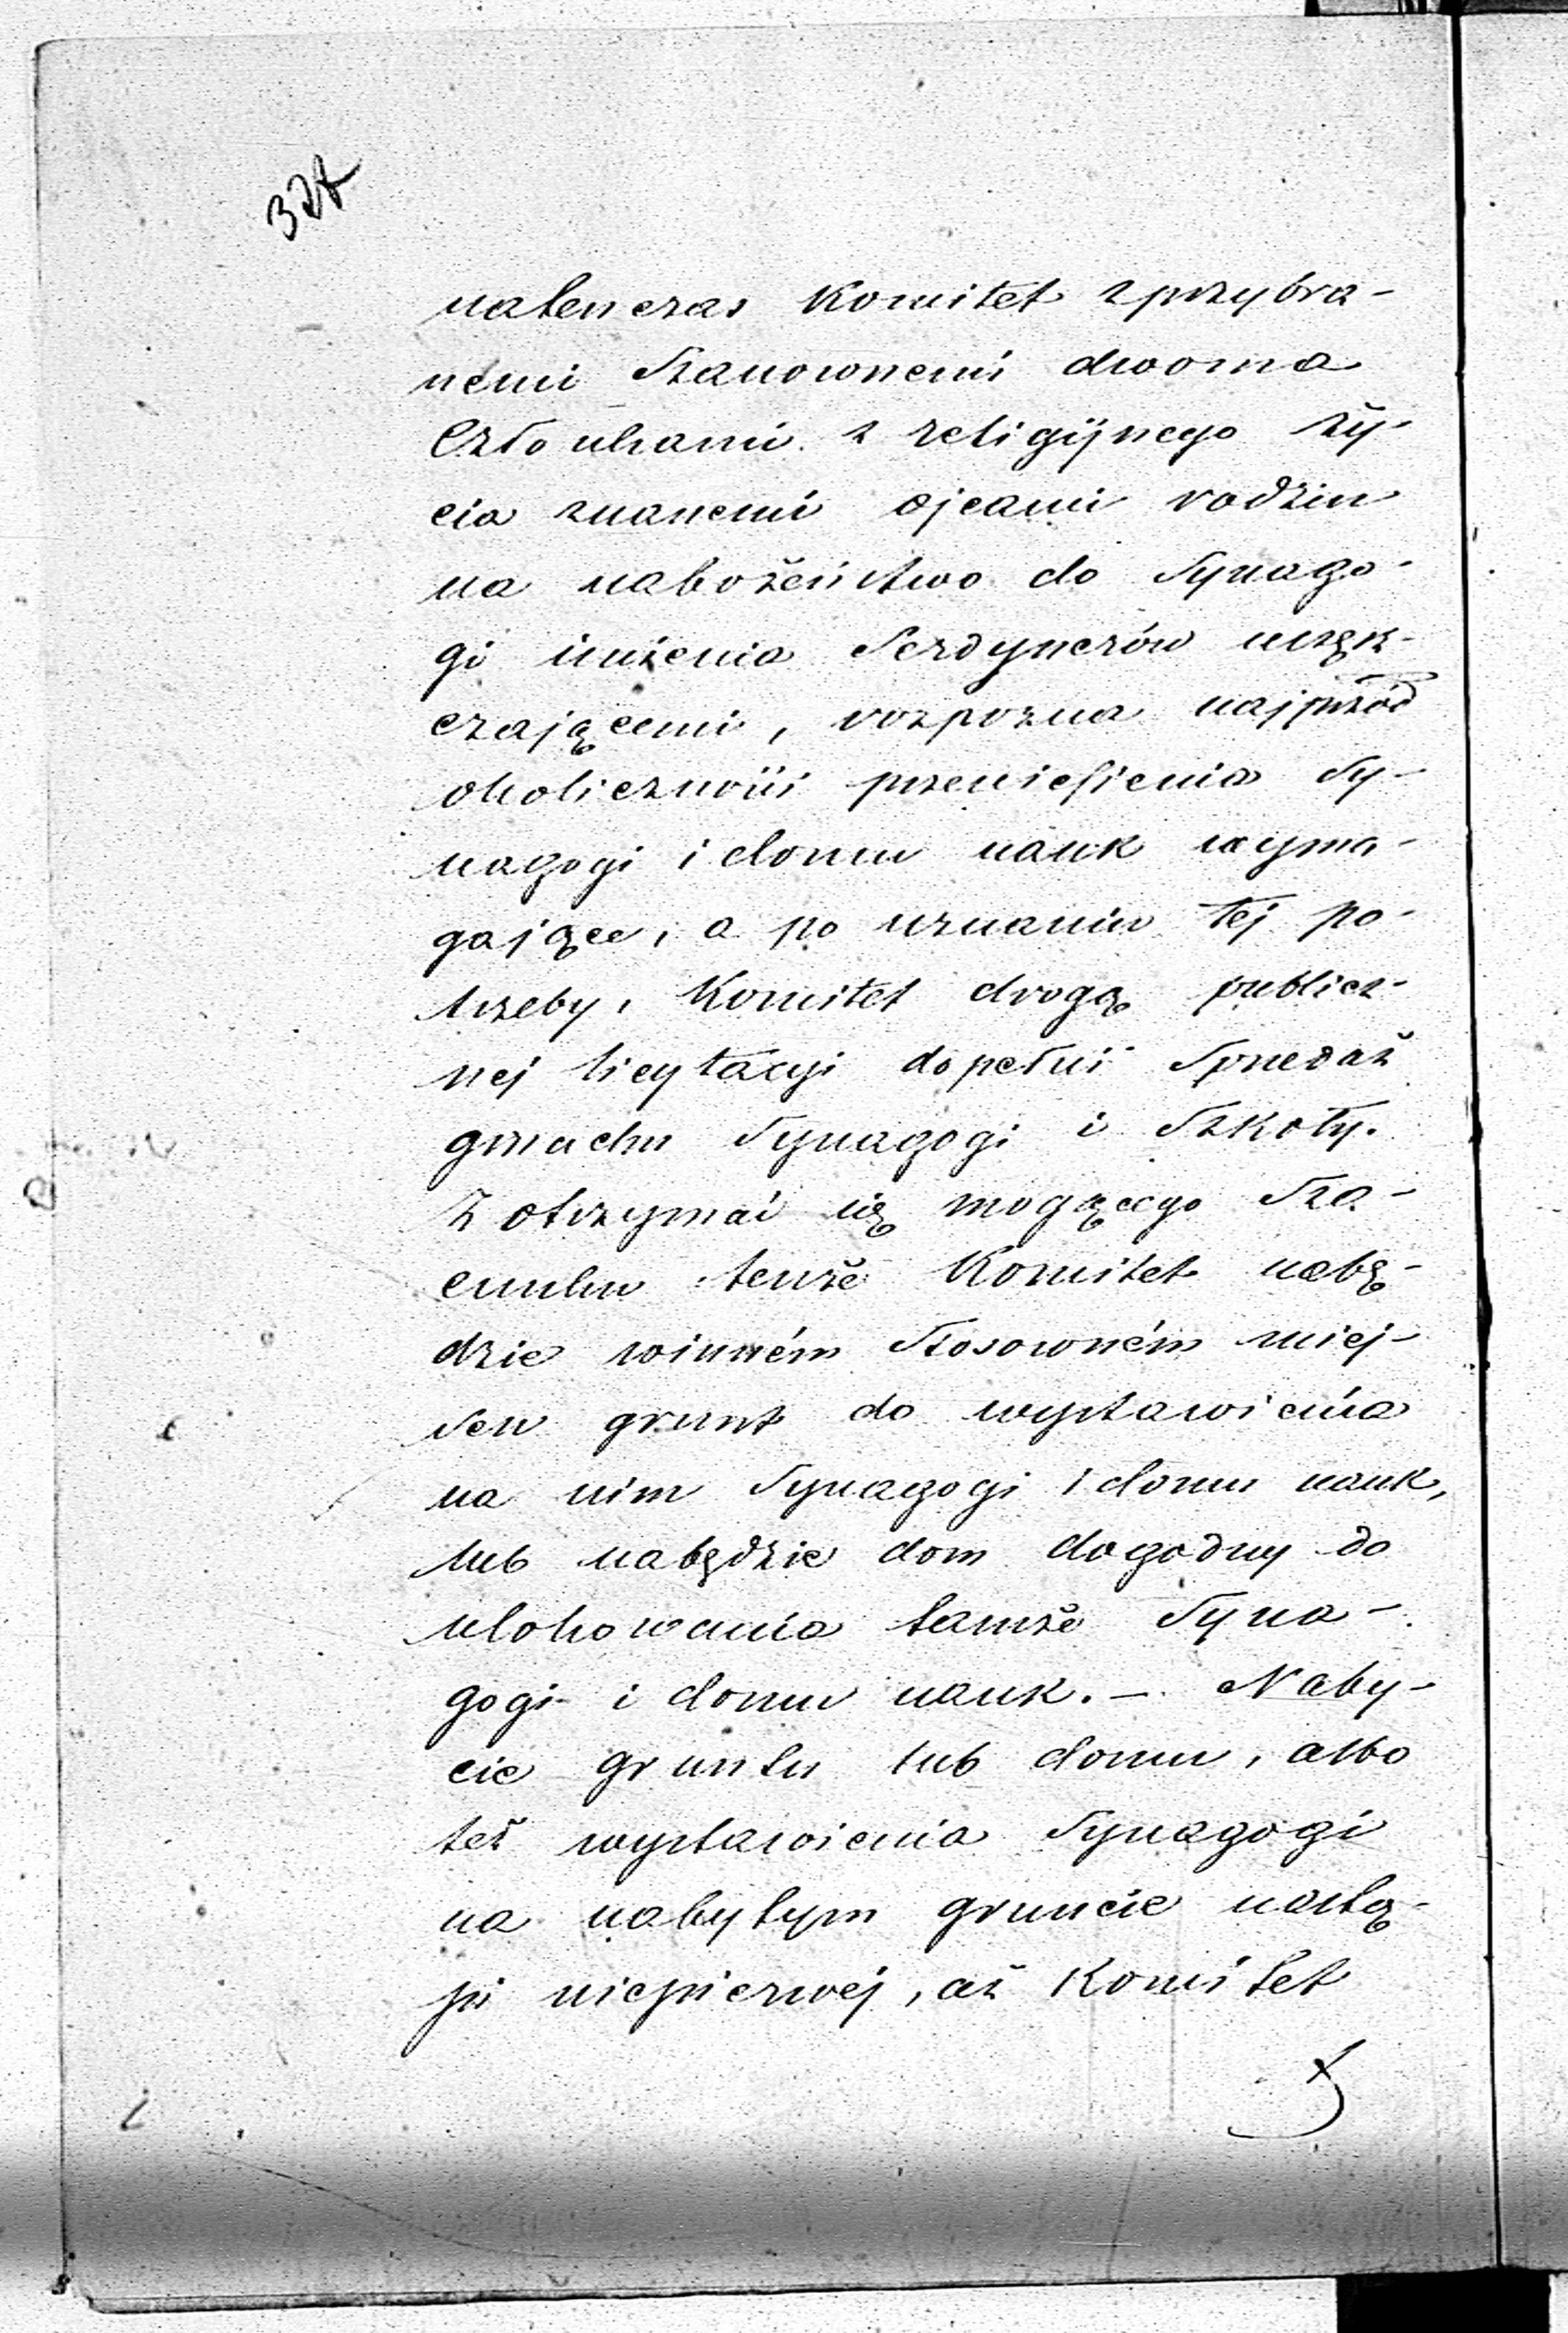 natenczas Komitet z przybra-
nemi Szanownemi dwoma
Członkami z religijnego ży-
cia znanemi ojcami rodzin
na nabożeństwo do Synago-
gi imienia Serdynerów uczęsz-
czającemi, rozpozna najprzód
okoliczności przeniesienia Sy-
nagogi i domu nauk wyma-
gające, a po uznaniu tej po-
trzeby, Komitet drogą publicz-
nej licytacyi dopełni Sprzedaż
gmachu Synagogi i Szkoły.
Z otrzymać się mogącego Sza-
cunku tenże Komitet nabę-
dzie winném Stosowném miej-
scu grunt do wystawienia
na nim Synagogi i domu nauk,
lub nabędzie dom dogodny do
ulokowania tamże Syna-
gogi i domu nauk. – Naby-
cie gruntu lub domu, albo
też wystawienia Synagogi
na nabytym gruncie nastą-
pi niepierwej, aż Komitet